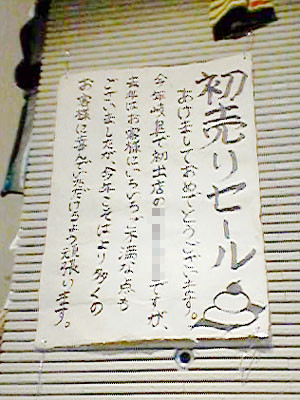 初売りセール
あけましておめでとうございます。
今年岐阜で初出店の ですが、
去年はお客様にいろいろご不満な点も
ございましたが、今年こそはより多くの
お客様に喜んでいただけるよう頑張ります。